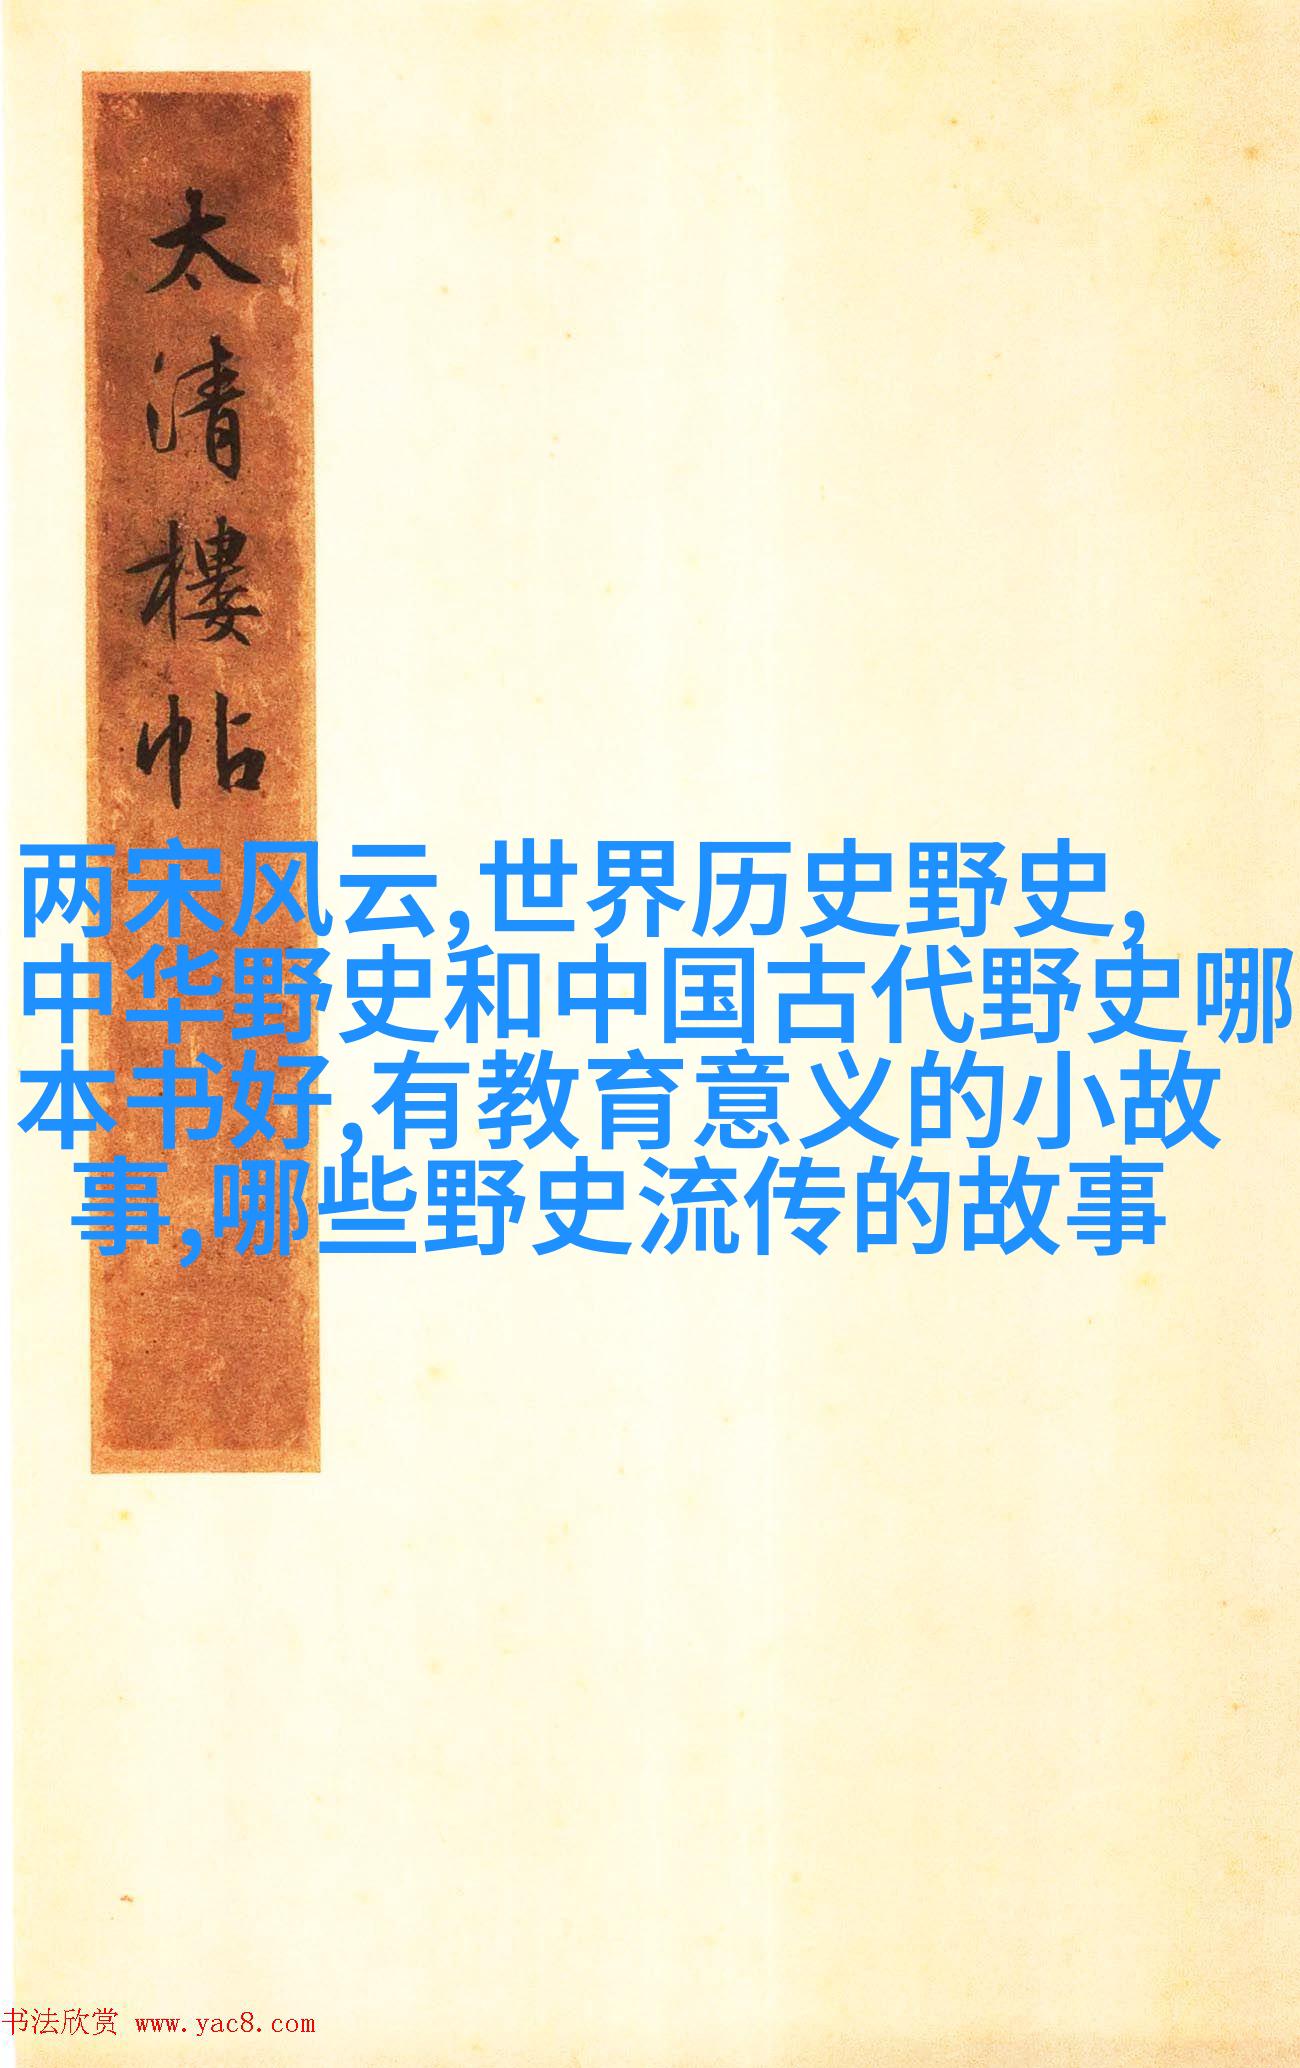 太清樓帖
两宋风云,世界历史野史,
中华野史和中国古代野史哪
本书好,有教育意义的小故
事,哪些野史流传的故事
书法欣赏 www.yac8.com